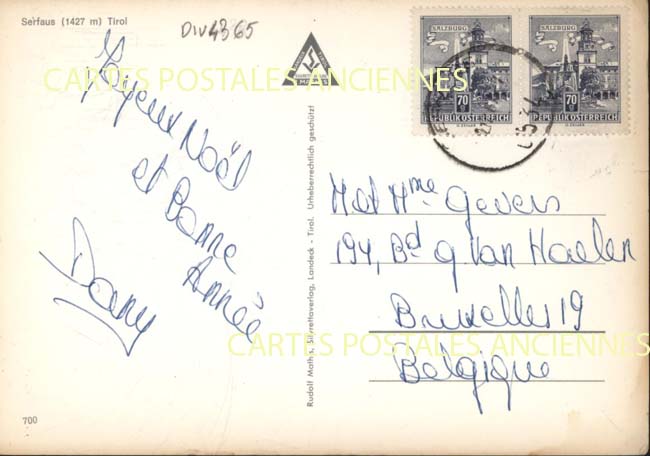 Serfaus (1427 m) Tirol
Div4365
Joyeux Noël
et Bonne
Année
Dany
Rudolf Mathis, Silvrettaverlag, Landeck - Tirol. Urheberrechtlich geschützt
SALZBURG
70
REPUBLIK ÖSTERREICH
SALZBURG
70
REPUBLIK ÖSTERREICH
M et Mme Gevers
194, Bd g. Van Haelen
Bruxelles 19
Belgique
700
CARTES POSTALES ANCIENNES
CARTES POSTALES ANCIENNES